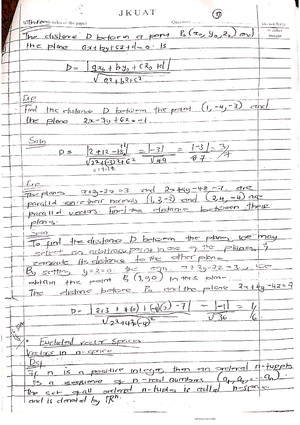 JKUAT
The distance D between a point P₀(x₀, y₀, z₀) and
the plane ax+by+cz+d=0 is
D = |ax₀ + by₀ + cz₀ + d|
√a²+b²+c²
Find the distance D between the point (1, -4, -3) and
the plane 2x-3y+6z=-1
Soln
D = |2+12-18+1| = |-3| = |-3| = 3/7
√2²+(-3)²+6² √49 7
The planes x+2y-2z=3 and 2x+4y-4z=7 are
parallel since their normals (1,2,-2) and (2,4,-4) are
parallel vectors. Find the distance between these
planes
Soln
To find the distance D between the planes, we may
select an arbitrary point in one of the planes &
compute its distance to the other plane.
By setting y=z=0 in the eqn x+2y-2z=3, we
obtain the point P₀(3,0,0) in this plane
The distance between P₀ and the plane 2x+4y-4z=7
D = |2·3 + 4(0) + (-4)(0) - 7| = |-1| = 1/6
√2²+4²+(-4)² √36 6
Euclidean vector spaces
Vectors in n-space
Def
If n is a positive integer, then an ordered n-tuple
is a sequence of n-real numbers (a₁, a₂, ... aₙ).
The set of all ordered n-tuples is called n-space
and is denoted by ℝⁿ.